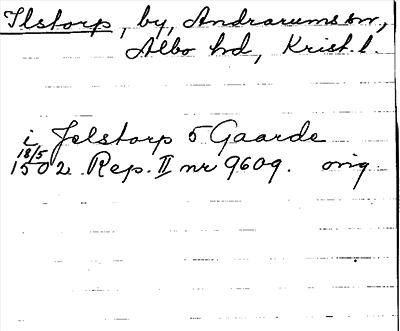 Ilstorp, by, Andrarums sn,
Albo hd, Krist. l.
i Jelstorp 5 Gaarde
18/5
1502 Rep. II nr 9609. orig.